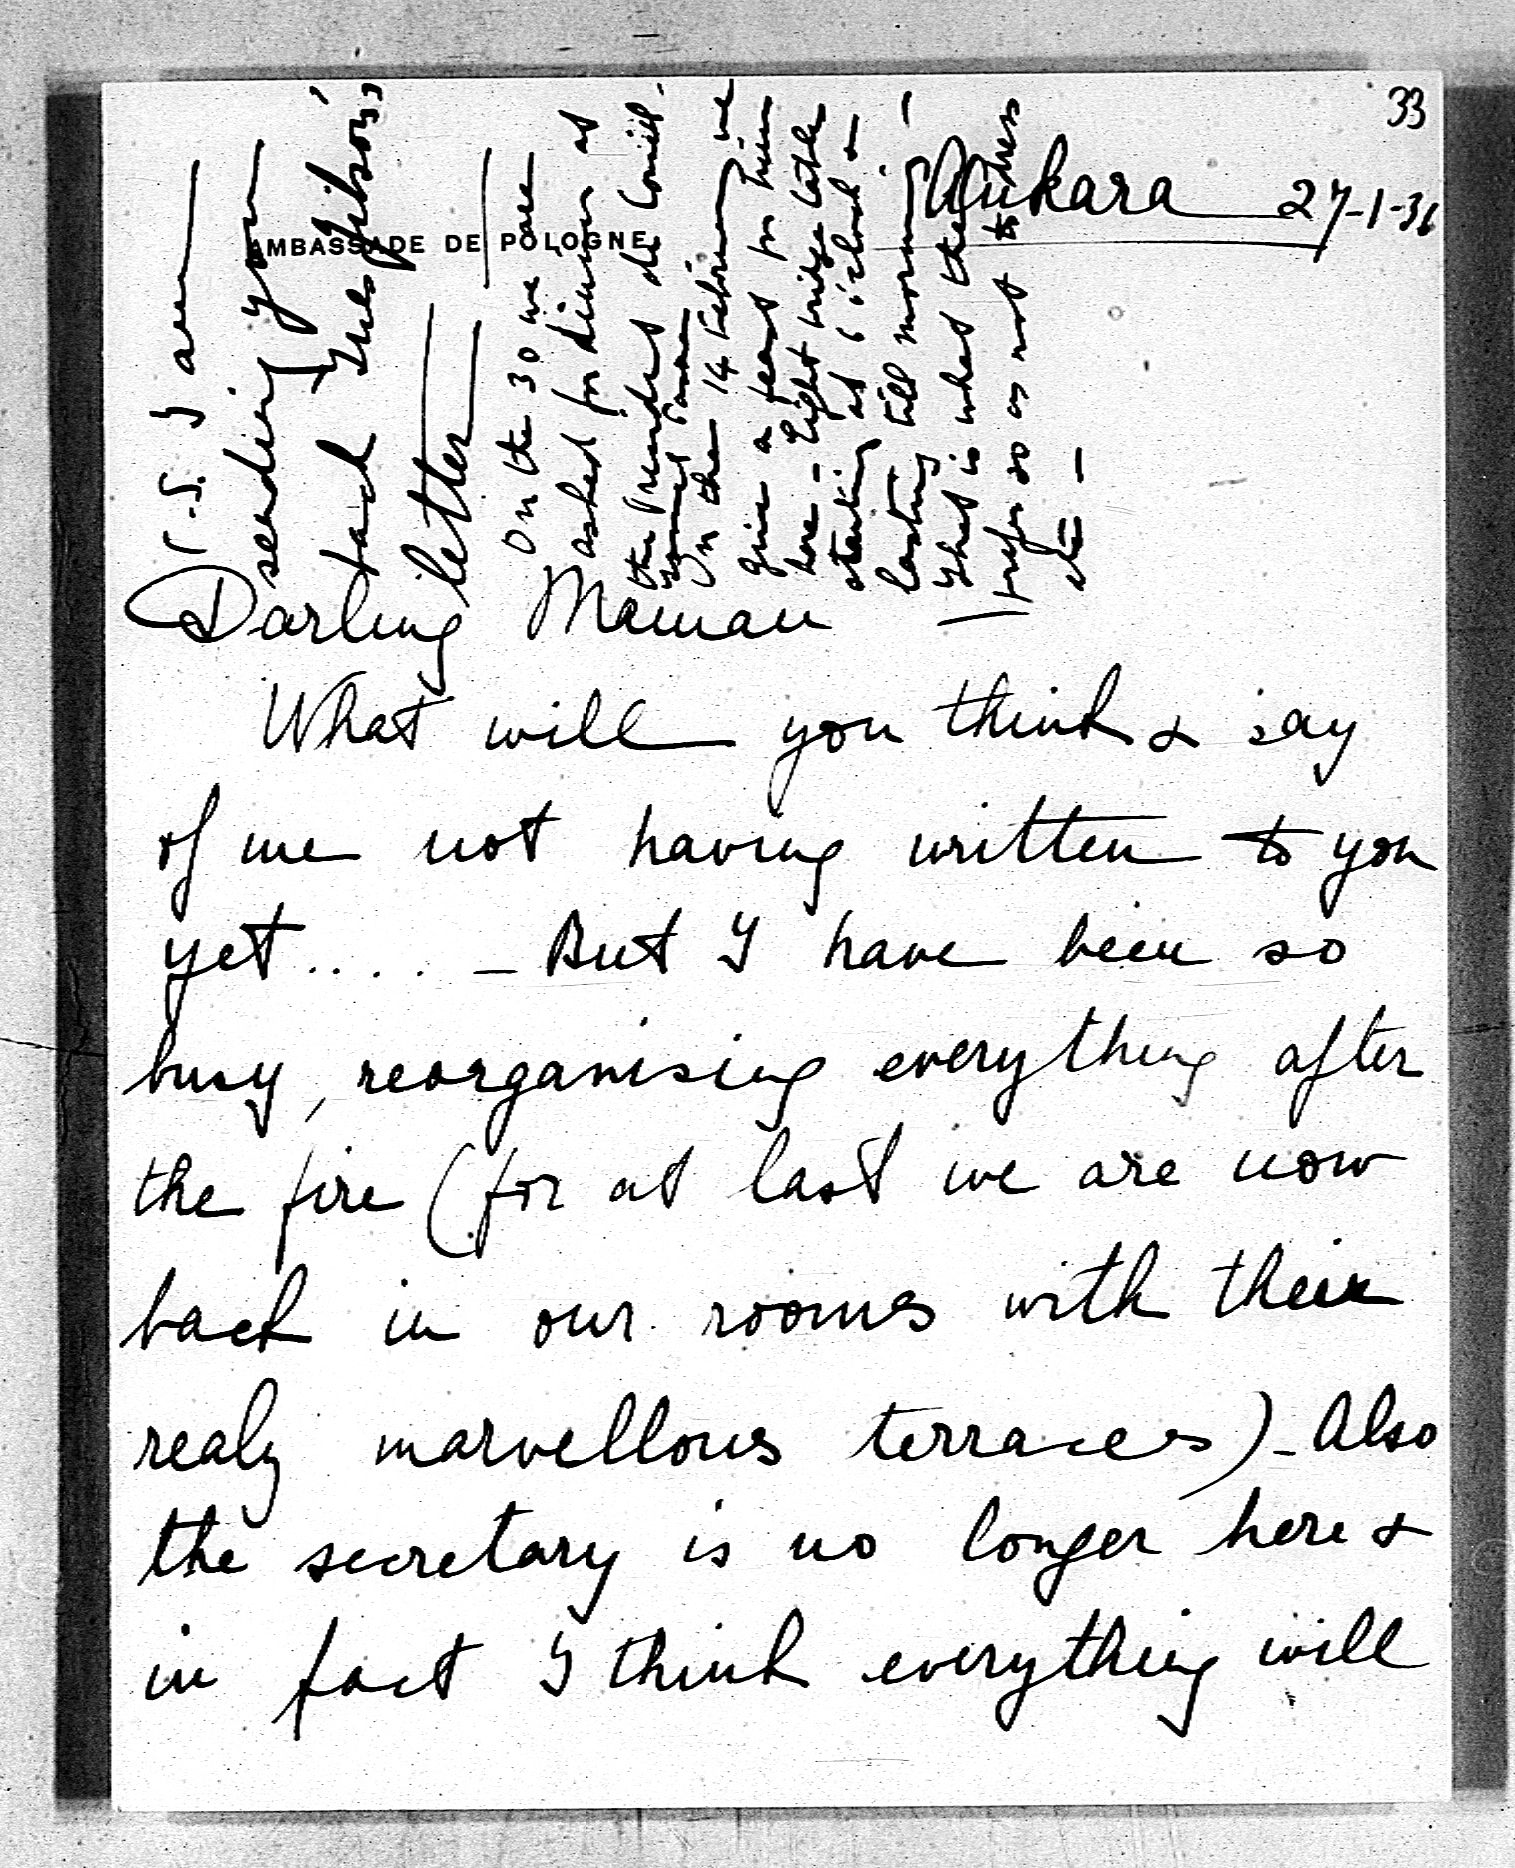 33
Ankara 27-1-36
AMBASSADE DE POLOGNE
P.S. I am
sending you
back Mrs Gibson's
letter
On the 30 we are
asked for dinner at
the President du Conseil.
On the 14 February we
give a feast for him
here - Eight bridge tables
starting at 6 o'clock &
lasting till morning! -
That is what they
prefer so as not to dress
etc -
Darling Maman -
What will you think & say
of me not having written to you
yet.... - But I have been so
busy, reorganising everything after
the fire (for at last we are now
back in our rooms with their
realy marvellous terraces) - Also
the secretary is no longer here &
in fact I think everything will